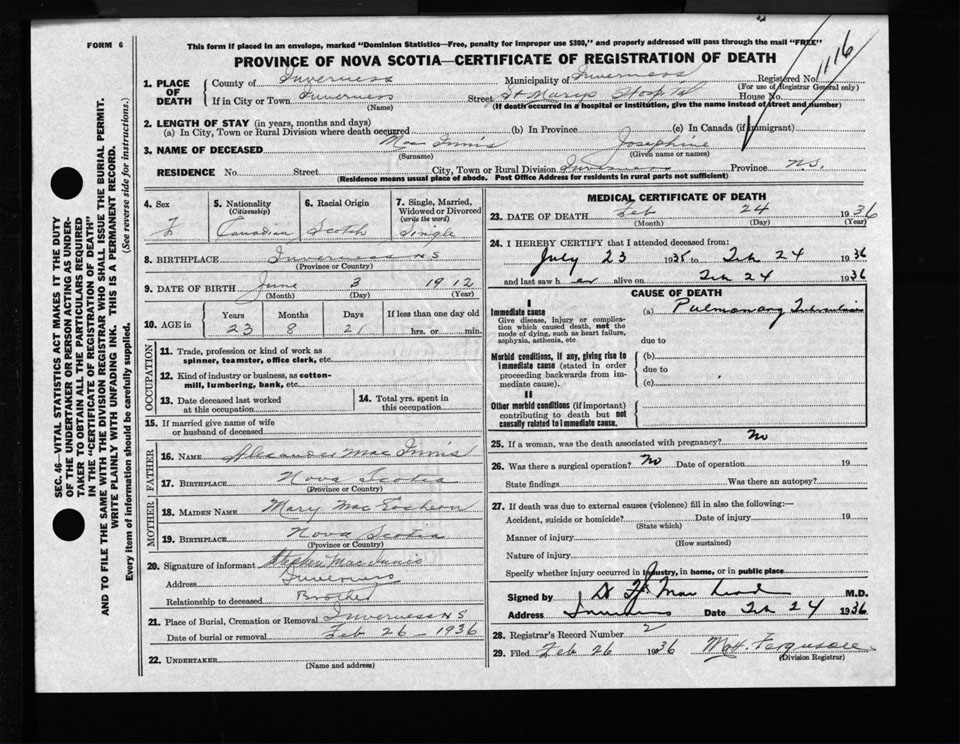 FORM 6
This form if placed in an envelope, marked "Dominion Statistics—Free, penalty for improper use $300," and properly addressed will pass through the mail "FREE"
PROVINCE OF NOVA SCOTIA—CERTIFICATE OF REGISTRATION OF DEATH
1116
SEC. 46—VITAL STATISTICS ACT MAKES IT THE DUTY
OF THE UNDERTAKER OR PERSON ACTING AS UNDER-
TAKER TO OBTAIN ALL THE PARTICULARS REQUIRED
IN THE "CERTIFICATE OF REGISTRATION OF DEATH"
AND TO FILE THE SAME WITH THE DIVISION REGISTRAR WHO SHALL ISSUE THE BURIAL PERMIT.
WRITE PLAINLY WITH UNFADING INK. THIS IS A PERMANENT RECORD.
Every item of information should be carefully supplied. (See reverse side for instructions.)
1. PLACE OF DEATH
County of Inverness Municipality of Inverness Registered No.
(For use of Registrar General only)
If in City or Town Inverness Street St Marys Hospital House No.
(Name) (If death occurred in a hospital or institution, give the name instead of street and number)
2. LENGTH OF STAY (in years, months and days)
(a) In City, Town or Rural Division where death occurred (b) In Province (c) In Canada (if immigrant)
3. NAME OF DECEASED Mac Innis Josephine
(Surname) (Given name or names)
RESIDENCE No. Street City, Town or Rural Division Inverness Province N.S.
(Residence means usual place of abode. Post Office Address for residents in rural parts not sufficient)
4. Sex F
5. Nationality (Citizenship) Canadian
6. Racial Origin Scotch
7. Single, Married, Widowed or Divorced (write the word) Single
8. BIRTHPLACE Inverness N S
(Province or Country)
9. DATE OF BIRTH June 3 1912
(Month) (Day) (Year)
10. AGE in Years Months Days If less than one day old
23 8 21 hrs. or min.
OCCUPATION
11. Trade, profession or kind of work as
spinner, teamster, office clerk, etc.
12. Kind of industry or business, as cotton-
mill, lumbering, bank, etc.
13. Date deceased last worked
at this occupation
14. Total yrs. spent in
this occupation
15. If married give name of wife
or husband of deceased
FATHER
16. NAME Alexander Mac Innis
17. BIRTHPLACE Nova Scotia
(Province or Country)
MOTHER
18. MAIDEN NAME Mary Mac Eachern
19. BIRTHPLACE Nova Scotia
(Province or Country)
20. Signature of informant Stephen Mac Innis
Address Inverness
Relationship to deceased Brother
21. Place of Burial, Cremation or Removal Inverness N S
Date of burial or removal Feb 26 - 1936
22. UNDERTAKER
(Name and address)
MEDICAL CERTIFICATE OF DEATH
23. DATE OF DEATH Feb 24 1936
(Month) (Day) (Year)
24. I HEREBY CERTIFY that I attended deceased from:
July 23 1935 to Feb 24 1936
and last saw h er alive on Feb 24 1936
CAUSE OF DEATH
I
Immediate cause (a) Pulmonary Tuberculosis
Give disease, injury or complica-
tion which caused death, not the
mode of dying, such as heart failure,
asphyxia, asthenia, etc
due to
Morbid conditions, if any, giving rise to (b)
immediate cause (stated in order due to
proceeding backwards from im-
mediate cause). (c)
II
Other morbid conditions (if important)
contributing to death but not
causally related to immediate cause.
25. If a woman, was the death associated with pregnancy? No
26. Was there a surgical operation? No Date of operation 19
State findings Was there an autopsy?
27. If death was due to external causes (violence) fill in also the following:—
Accident, suicide or homicide? Date of injury 19
(State which)
Manner of injury
(How sustained)
Nature of injury
Specify whether injury occurred in industry, in home, or in public place
Signed by Mac Leod M.D.
Address Inverness Date Feb 24 1936
28. Registrar's Record Number 2
29. Filed Feb 26 1936 Ferguson
(Division Registrar)